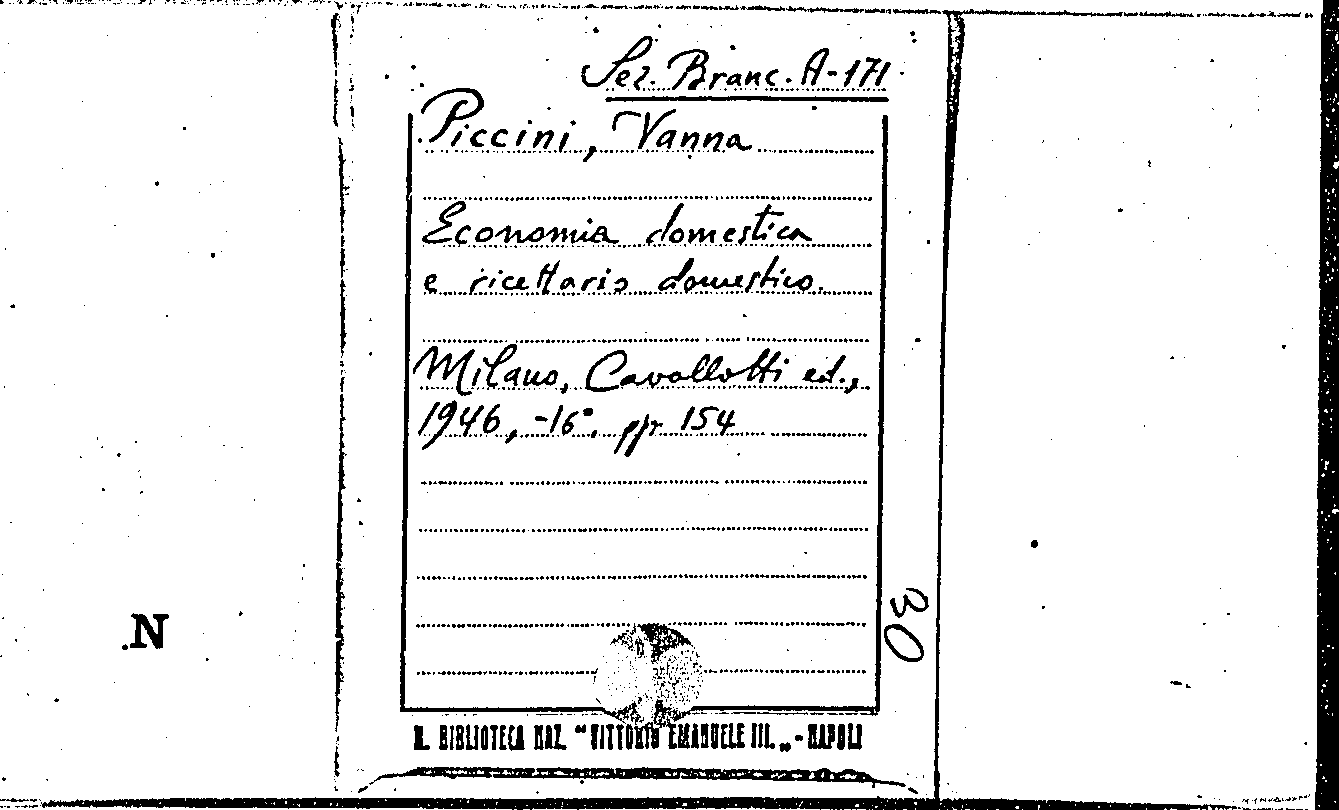 Sez. Branc. A-171
Piccini, Vanna
Economia domestica
e ricettario domestico.
Milano, Cavallotti ed.,
1946, -16°. pp 154
30
N
R. BIBLIOTECA NAZ. "VITTORIO EMANUELE III.„ - NAPOLI